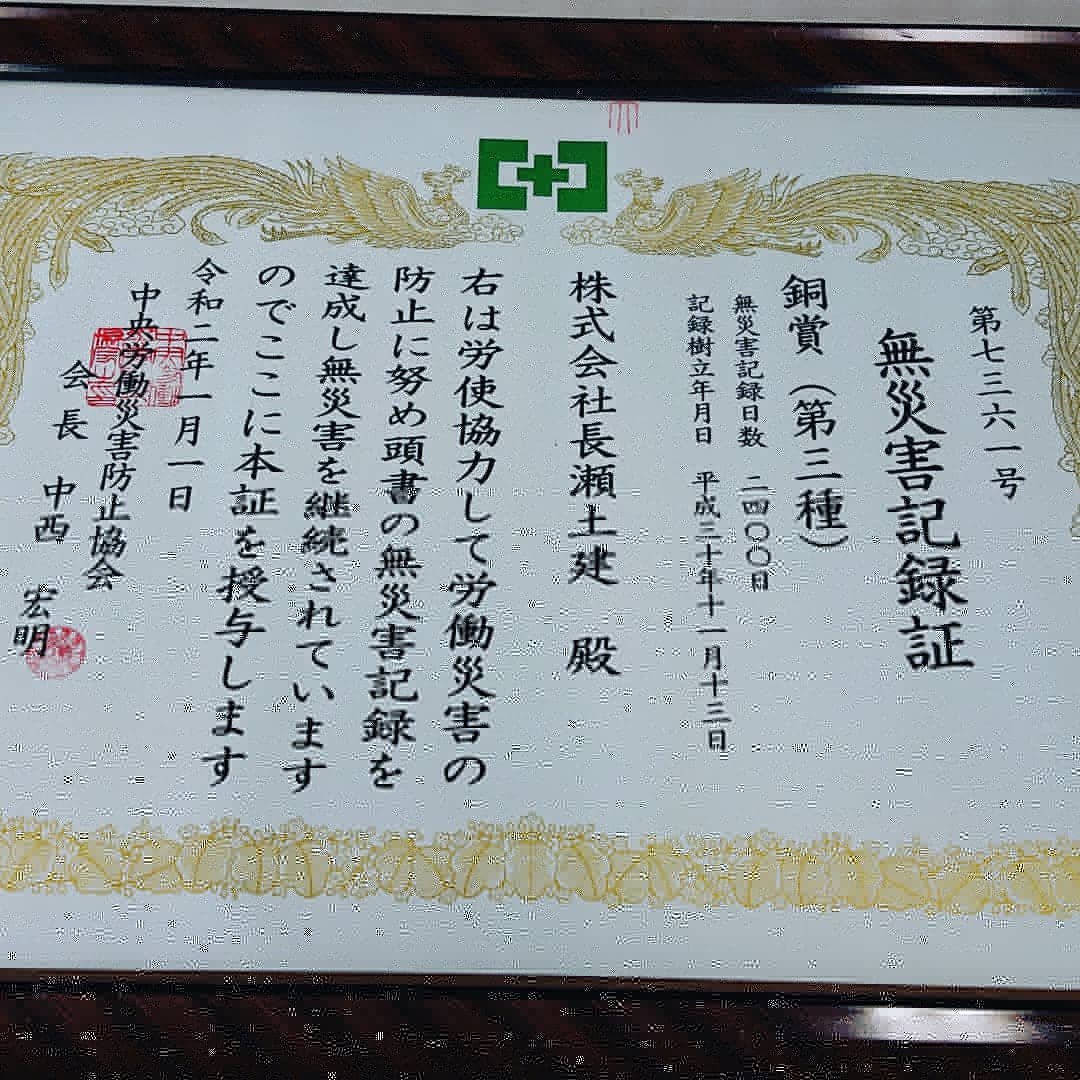 第七三六一号
無災害記録証
銅賞（第三種）
無災害記録日数 二四〇〇日
記録樹立年月日 平成三十年十一月十三日
株式会社長瀬土建 殿
右は労使協力して労働災害の
防止に努め頭書の無災害記録を
達成し無災害を継続されています
のでここに本証を授与します
令和二年一月一日
中央労働災害防止協会
会長 中西 宏明